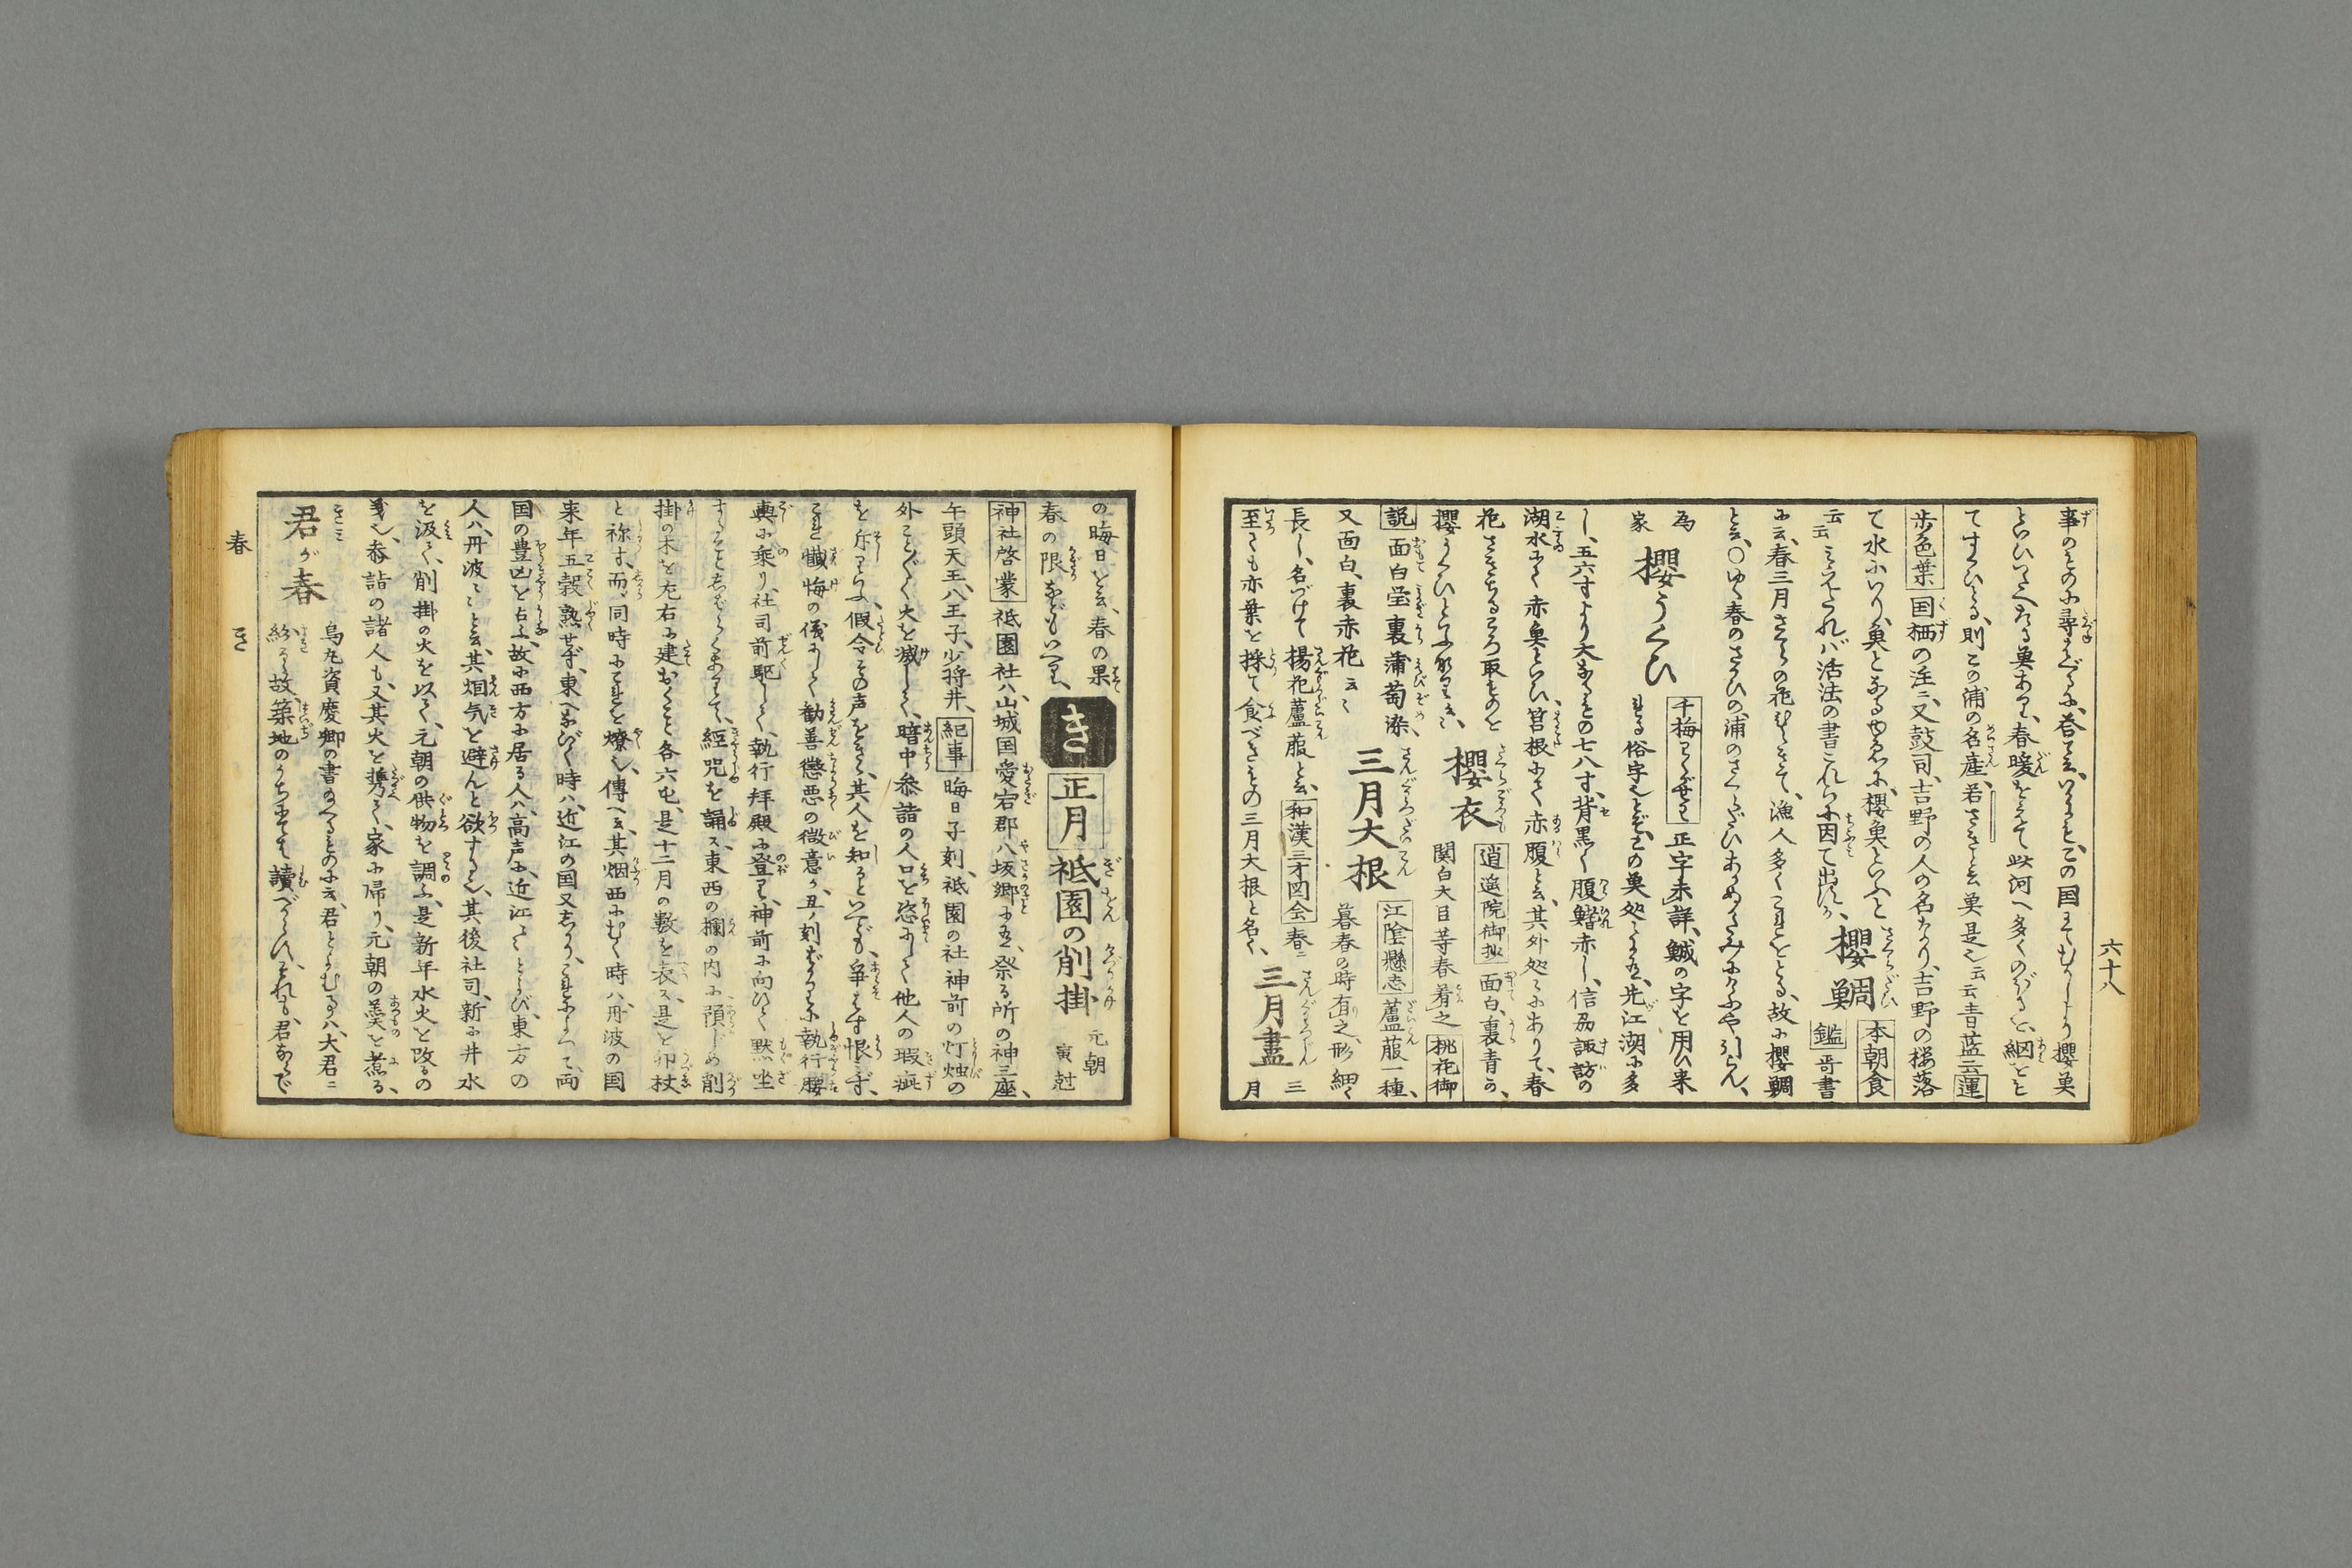 六十八
事のものに尋さぐるに、答て云、いにしへ、この国にてむかしより櫻𩵋
といひつたへたる𩵋あり、春暖をえて此河へ多くのぼるを、網をも
てすくひとる、則この浦の名産、若さきと云𩵋是也云云青藍云運
歩色葉 国栖の注ニ、又鼓司、吉野の人の名なり、吉野の桜落
て水にいり、魚となるゆゑに、櫻魚といふと 櫻鯛 本朝食鑑
云云 みえたれバ活法の書これらに因て出たるか、 哥書
に云、春三月さくらの花むらさきて、漁人多くこれをとる、故に櫻鯛
と云、○ゆく春のさかひの浦のさくらだひあかぬかたみにけふや引らん、
為家 櫻うぐひ 千梅 正字未詳、鰔の字を用ハ来
れる俗字也とぞ、この𩵋処々にあり、先江湖に多
し、五六寸より大なるもの七八寸、背黒く腹鰭赤し、信州諏訪の
湖水にて赤魚といひ、筥根にて赤腹と云、其外処々にありて、春
花さきちるころ取ものを 櫻衣 逍遥院御抄 面白、裏青か、
櫻うぐひといふ 関白大臣等春着之 桃花御
説 面白莹裏蒲萄染、 三月大根 江陰懸志 蘆菔一種、
又面白、裏赤花云々 暮春の時有之、形細く
長し、名づけて楊花蘆菔と云、和漢三才図会 春ニ 三月盡 三
至りても亦葉を採て食べきもの三月大根と名く、 月
の晦日を云、春の果、
春の限などもいへり、 き 正月 祇園の削掛 元朝寅尅
神社啓蒙 祇園社ハ、山城国愛宕郡八坂郷に在、祭る所の神三座、
午頭天王、八王子、少将井、紀事 晦日子刻、祇園の社神前の灯烛の
外ことごとく火を滅して、暗中参詣の人口を恣にして他人の瑕疵
を斥いふ、假令その声をきき、其人を知るといへども、争はず恨ミず、
これ懺悔の儀にして勧善懲悪の微意か、丑ノ刻ばかりに執行腰
輿に乗り、社司前駈して、執行拝殿に登り、神前に向ひて黙坐
することしばらくありて、經咒を誦ス、東西の欄の内に預じめ削
掛の木を左右に建おくこと各六也、是十二月の數を表ス、是を卯杖
と称す、而シて同時にこれを燎也、傳へ云、其烟西にむく時ハ、丹波の国
来年五穀熟せず、東へなびく時ハ、近江の国又しかり、これによつて、両
国の豊凶を占ふ、故に西方に居る人ハ、高声に、近江々々とよび、東方の
人ハ、丹波々々と云、其烟気を避んと欲する也、其後社司、新に井水
を汲て、削掛の火を以て、元朝の供物を調ふ、是新年水火を改るの
義也、参詣の諸人も、又其火を携て、家に帰り、元朝の羹を煮る、
君が春 烏丸資慶卿の書のべるものに云、君とよむるハ、大君ニ
紛るる故、築地のうちにても讀べからず、これも、君などで
春 き